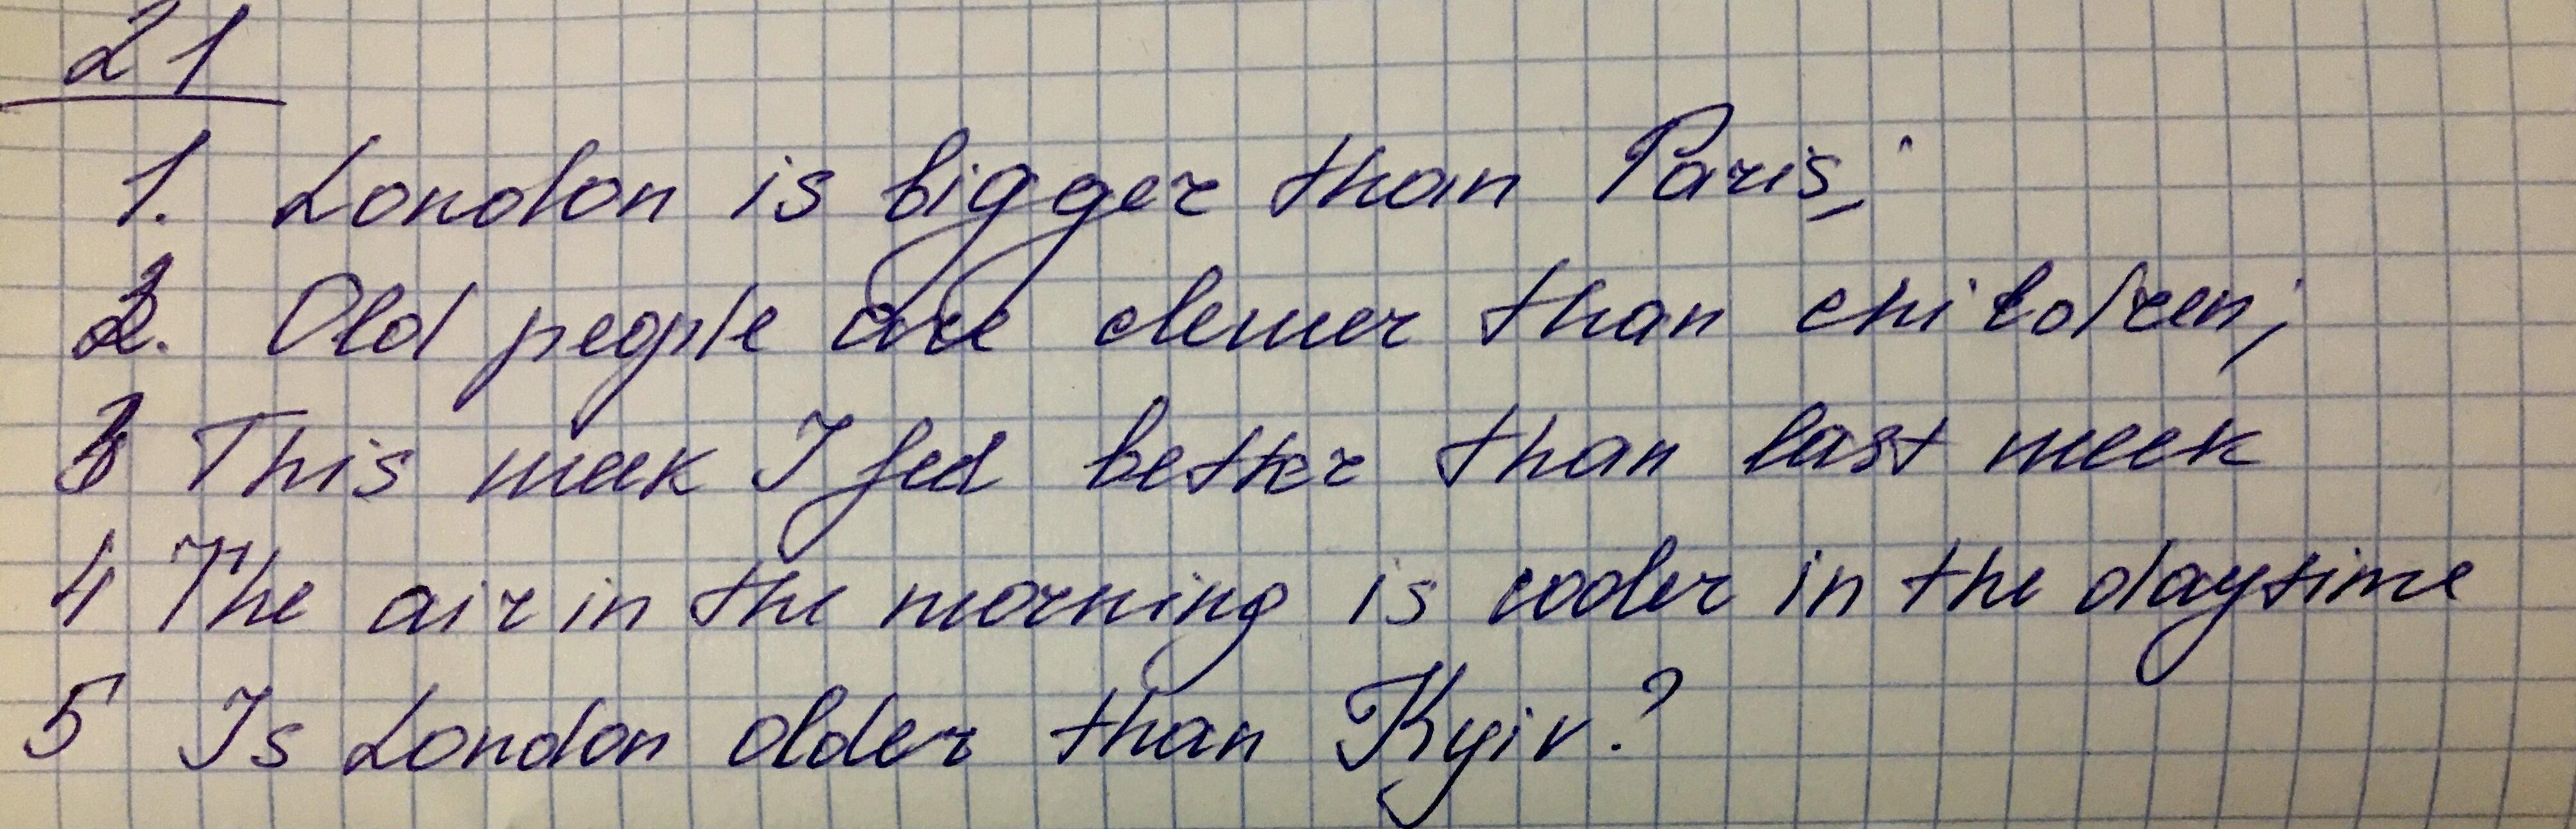 21
1. London is bigger than Paris;
2. Old people are clever than children;
3 This week I feel better than last week
4 The air in the morning is cooler in the daytime
5 Is London older than Kyiv?